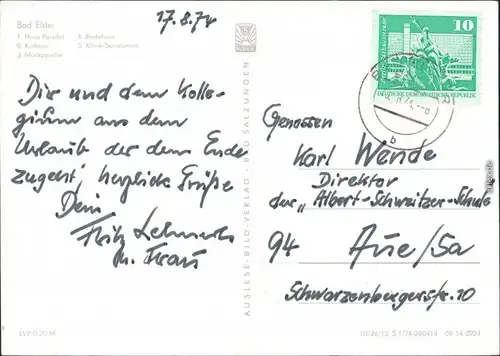 Bad Elster
1. Haus Parsifal 4. Badehaus
2. Kurhaus 5. Klinik-Sanatorium
3. Marktquelle
17.8.74
Dir und dem Kolle-
gium aus dem
Urlaub der dem Ende
zugeht, herzliche Grüße
Dein
Fritz
u. Frau
AUSLESE-BILD-VERLAG · BAD SALZUNGEN
10
DEUTSCHE DEMOKRATISCHE REPUBLIK
b
Genossen
Karl Wende
Direktor
der „Albert-Schweitzer-Schule
94 Aue/Sa
Schwarzenbergerstr. 10
EVP 0,20 M
III/26/13 S 1/74-280414 09 14 2203